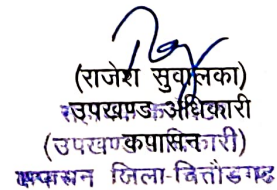 (राजेश सुवालका)
उपखण्ड अधिकारी
(उपखण्ड कपासन अधिकारी)
कपासन जिला-चित्तौड़गढ़